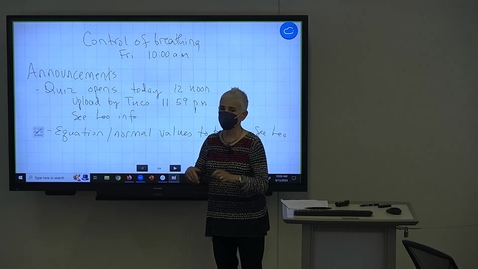 Control of breathing
Fri 10:00 a.m
Announcements
- Quiz opens today 12 noon
upload by Tues 11 59 p.m
See Leo info
- Equation/normal values to See Leo
Type here to search